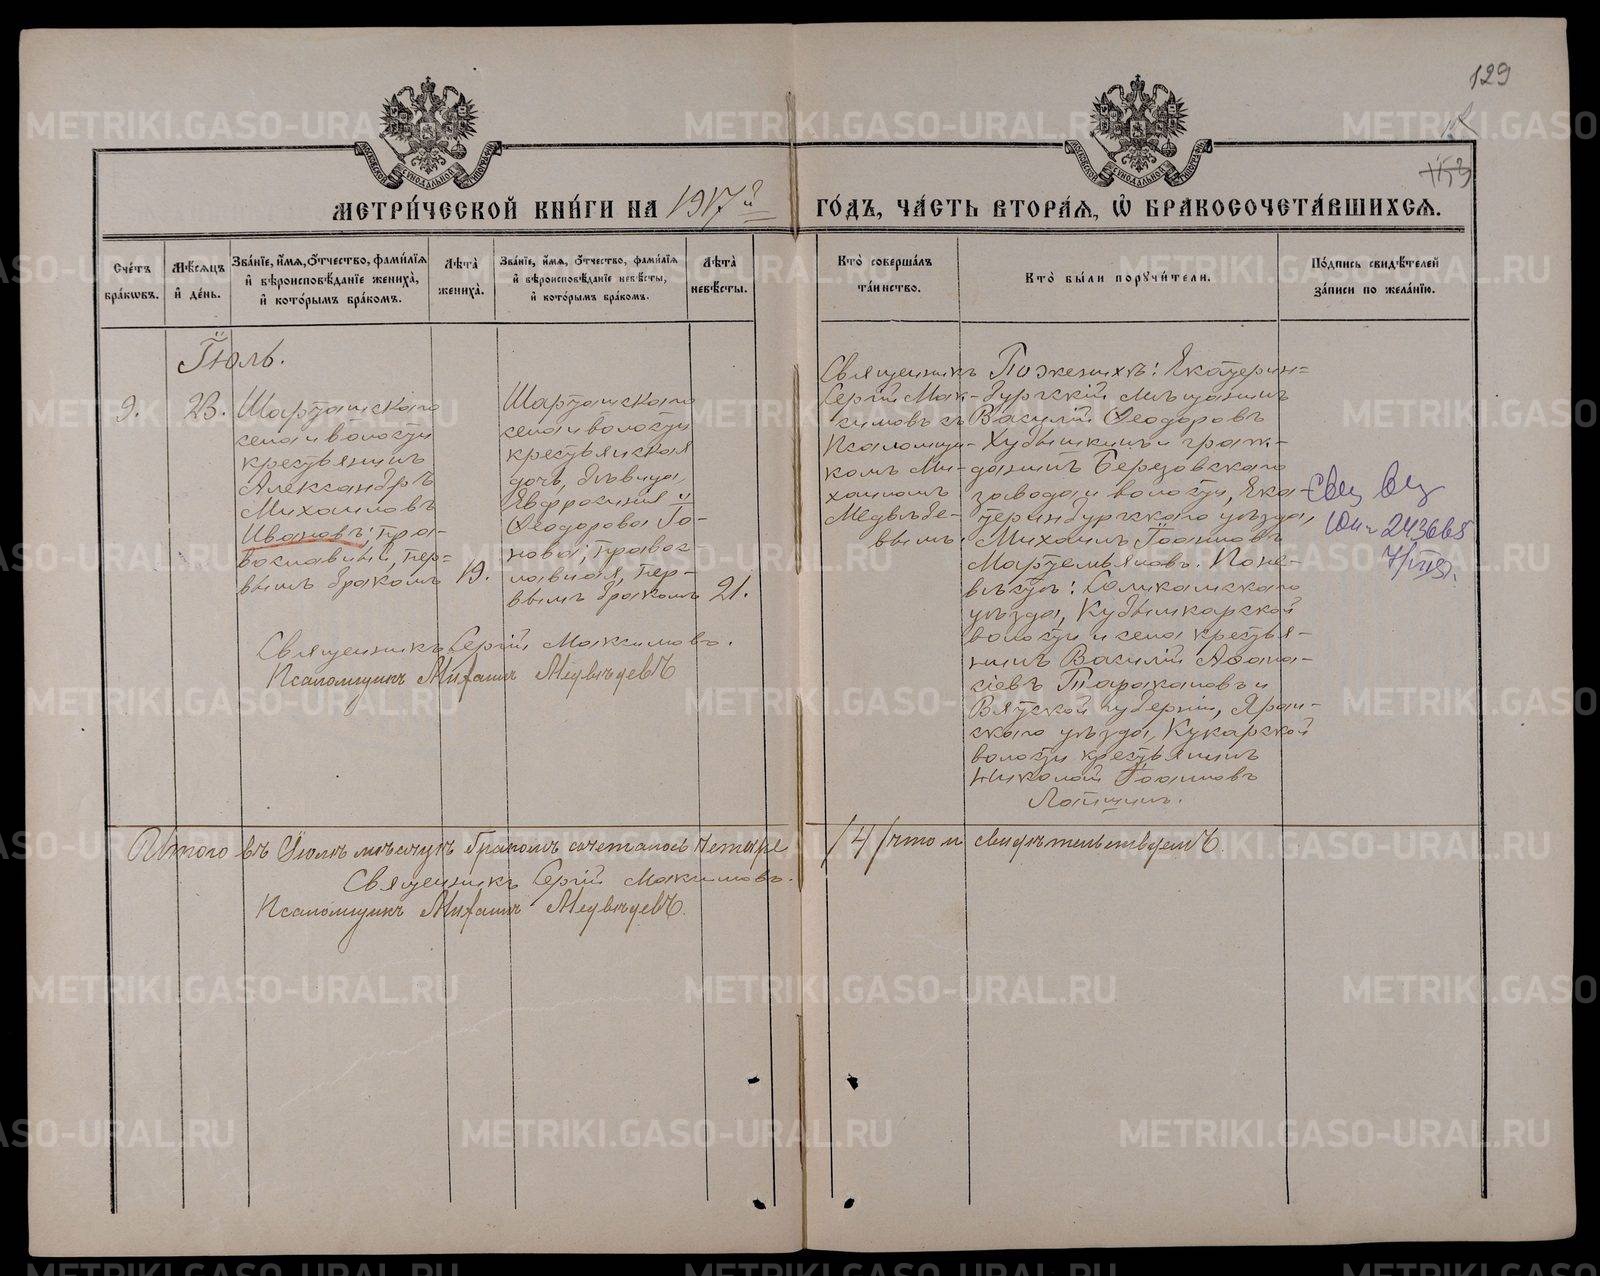 129
МОСКОВСКОЙ СѴНОДАЛЬНОЙ ТИПОГРАФІИ
МОСКОВСКОЙ СѴНОДАЛЬНОЙ ТИПОГРАФІИ
МЕТРИ́ЧЕСКОЙ КНИ́ГИ НА 1917й ГО́ДЪ, ЧА́СТЬ ВТОРА́Я, Ѡ҆ БРАКОСОЧЕТА́ВШИХСЯ.
Сче́тъ бра́кѡвъ.
Мѣ́сяцъ и҆ де́нь.
Зва́нїе, и҆́мя, ѻ҆́тчество, фами́лїя и҆ вѣроисповѣ́данїе жениха̀, и҆ кото́рымъ бра́комъ.
Лѣ́та жениха̀.
Зва́нїе, и҆́мя, ѻ҆́тчество, фами́лїя и҆ вѣроисповѣ́данїе невѣ́сты, и҆ кото́рымъ бра́комъ.
Лѣ́та невѣ́сты.
Кто̀ соверша́лъ та́инство.
Кто̀ бы́ли порꙋчи́тели.
По́дпись свидѣ́телей за́писи по жела́нїю.
Іюль.
9.
23.
Шарташскаго
села и волости
крестьянинъ
Александръ
Михаиловъ
Ивановъ; пра-
вославный, пер-
вымъ бракомъ
19.
Шарташскаго
села и волости
крестьянская
дочь, дѣвица,
Евфросинія
Ѳеодорова Го-
нова; правос-
лавная, пер-
вымъ бракомъ
21.
Священникъ
Сергій Мак-
симовъ съ
Псаломщи-
комъ Ми-
хаиломъ
Медвѣде-
вымъ.
По женихѣ: Екатерин-
бургскій мѣщанинъ
Василій Ѳеодоровъ
Худышкинъ и граж-
данинъ Березовскаго
завода и волости, Ека-
теринбургскаго уѣзда,
Михаилъ Іоанновъ
Мартемьяновъ. По не-
вѣстѣ: Соликамскаго
уѣзда, Кудымкарской
волости и села крестья-
нинъ Василій Аѳана-
сіевъ Таракановъ и
Вятской губерніи, Яран-
скаго уѣзда, Кукарской
волости крестьянинъ
Николай Іоанновъ
Лаптинъ.
243665
Священникъ Сергій Максимовъ.
Псаломщикъ Михаилъ Медвѣдевъ
Итого въ Іюлѣ мѣсяцѣ бракомъ сочеталось четыре /4/ что и свидѣтельствуемъ.
Священникъ Сергій Максимовъ.
Псаломщикъ Михаилъ Медвѣдевъ.
METRIKI.GASO-URAL.RU